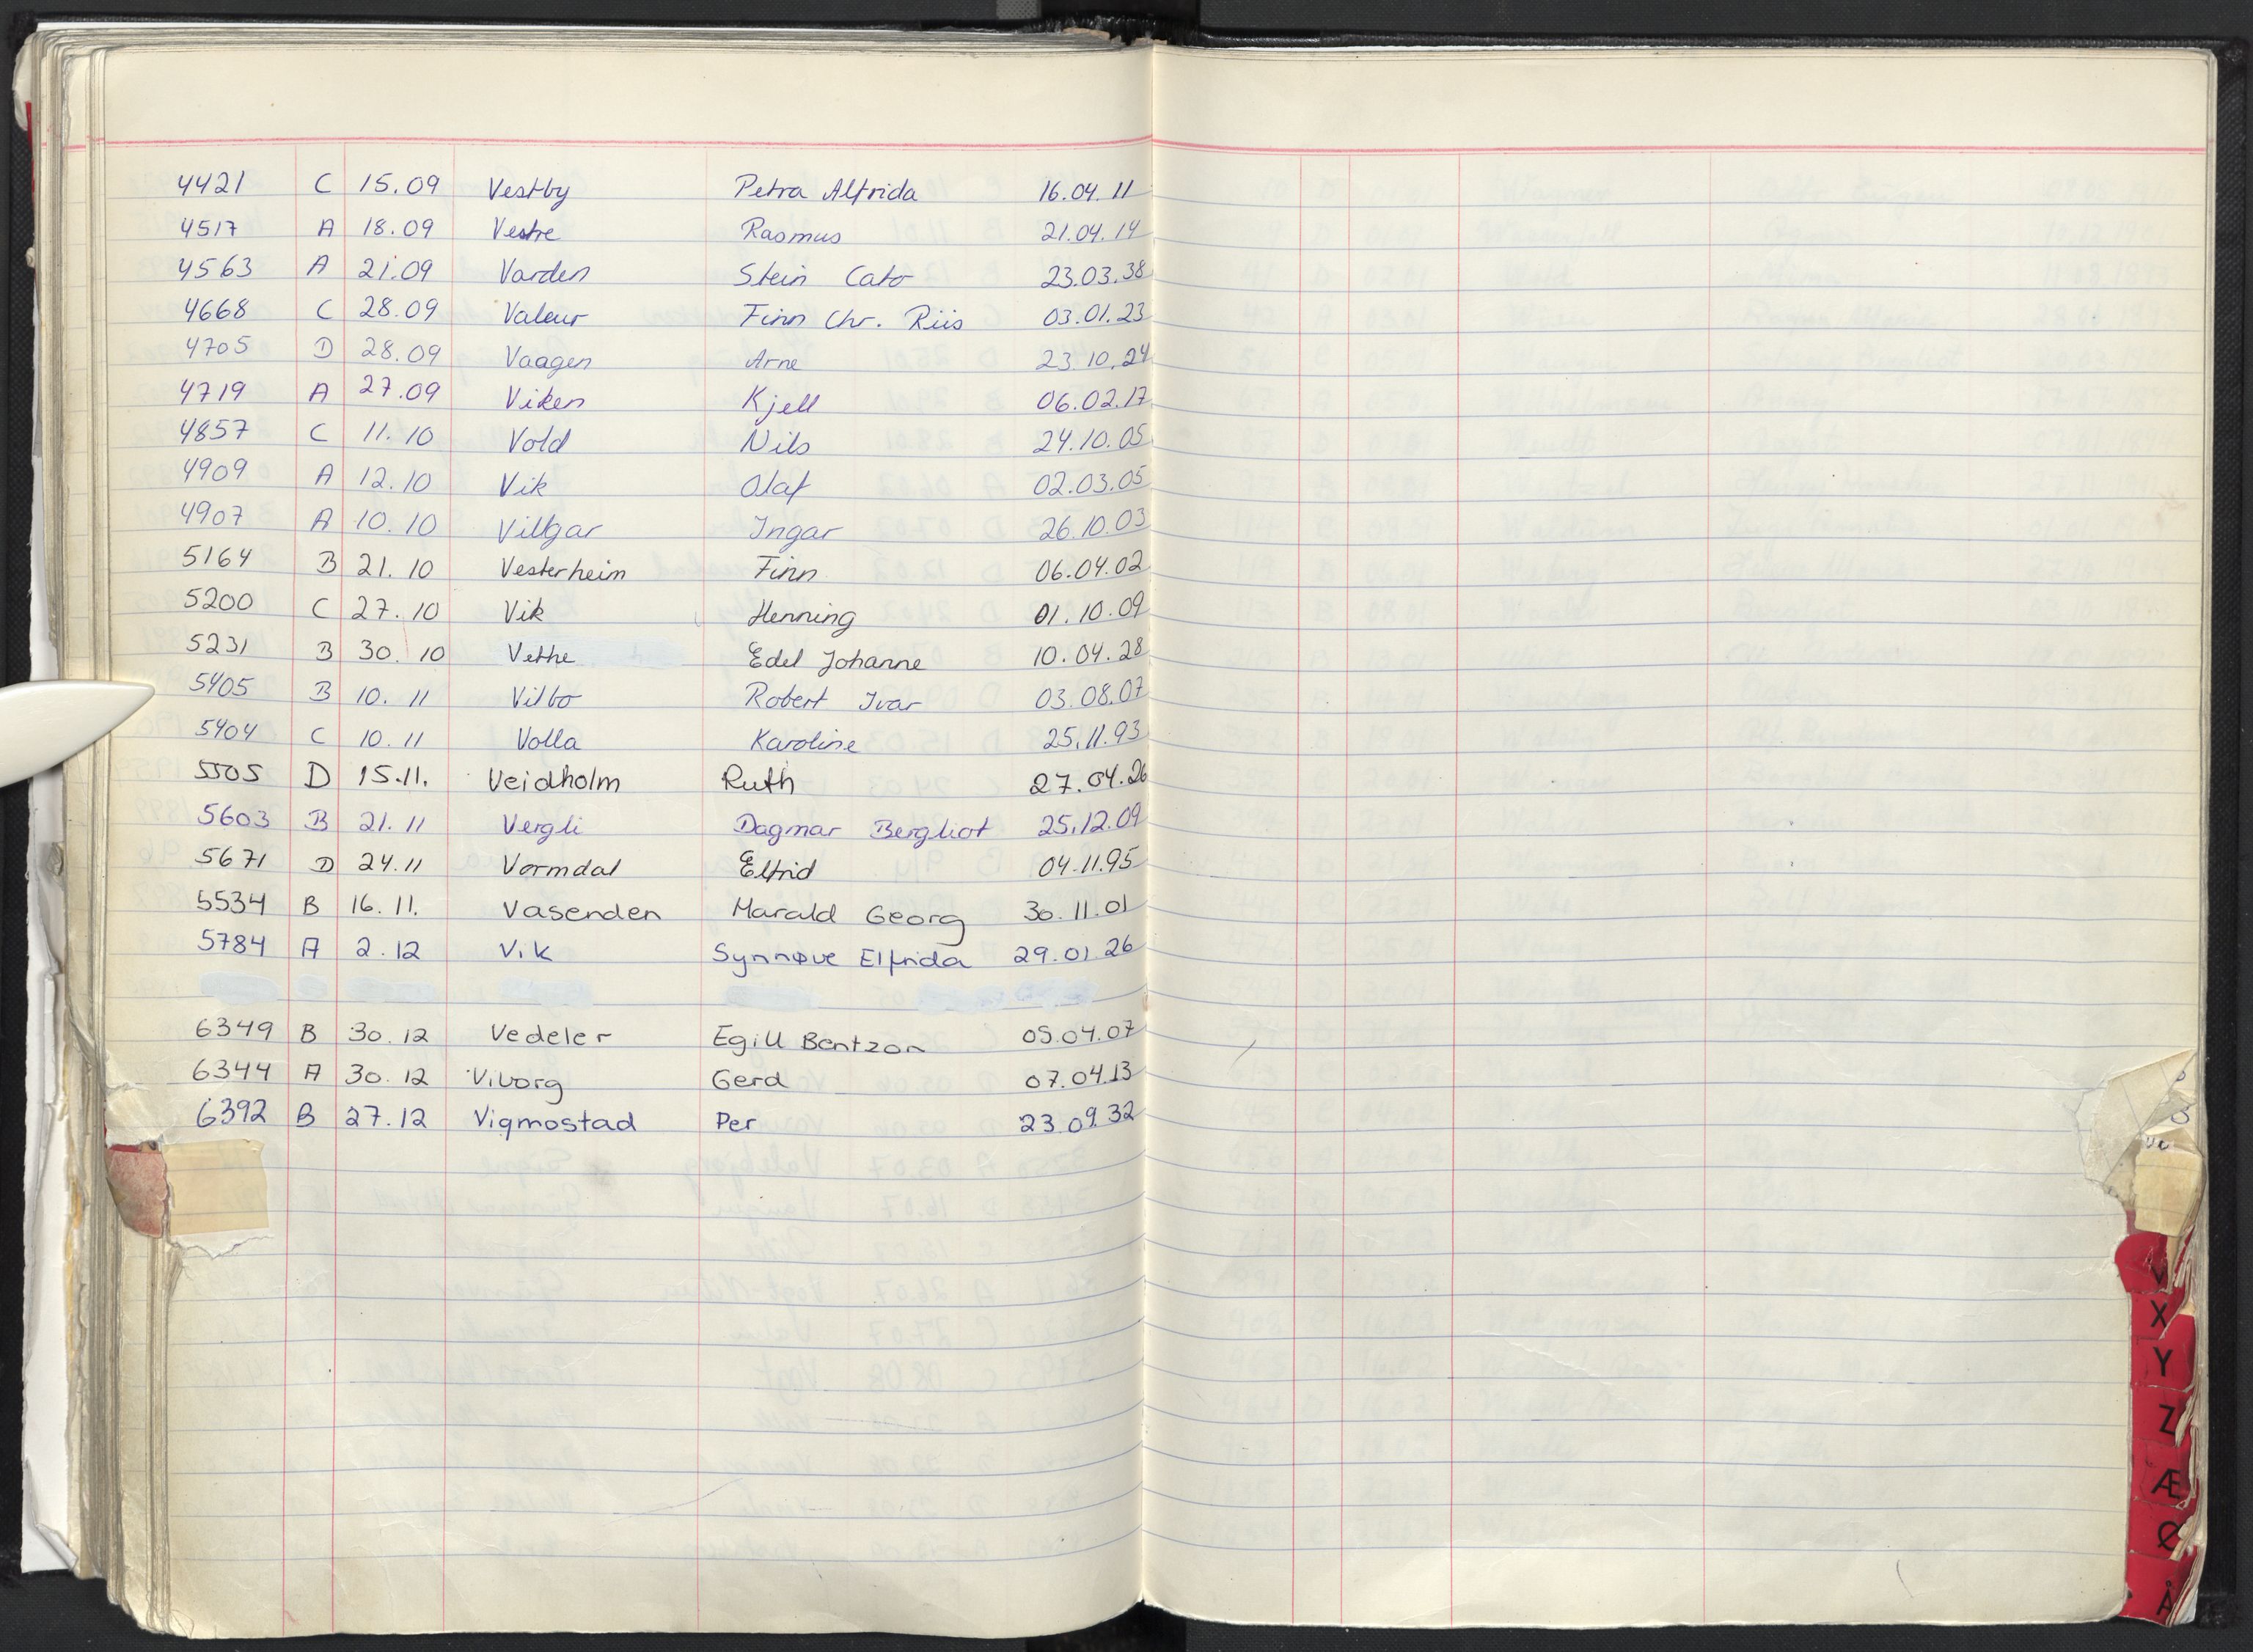 4421 C 15.09 Vestby Petra Alfrida 16.04.11
4517 A 18.09 Vestre Rasmus 21.04.14
4563 A 21.09 Varden Stein Cato 23.03.38
4668 C 28.09 Valeur Finn Chr. Riis 03.01.23
4705 D 28.09 Vaagen Arne 23.10.24
4719 A 27.09 Viken Kjell 06.02.17
4857 C 11.10 Vold Nils 24.10.05
4909 A 12.10 Vik Olaf 02.03.05
4907 A 10.10 Villgar Ingar 26.10.03
5164 B 21.10 Vesterheim Finn 06.04.02
5200 C 27.10 Vik Henning 01.10.09
5231 B 30.10 Vethe Edel Johanne 10.04.28
5405 B 10.11 Vilbo Robert Ivar 03.08.07
5404 C 10.11 Volla Karoline 25.11.93
5505 D 15.11. Veidholm Ruth 27.04.26
5603 B 21.11 Vergli Dagmar Bergliot 25.12.09
5671 D 24.11 Vormdal Elfrid 04.11.95
5534 B 16.11. Vasenden Harald Georg 30.11.01
5784 A 2.12 Vik Synnøve Elfrida 29.01.26
6349 B 30.12 Vedeler Egill Bentzon 05.04.07
6344 A 30.12 Viborg Gerd 07.04.13
6392 B 27.12 Vigmostad Per 23.09.32
V
X
Y
Z
Æ
Ø
Å